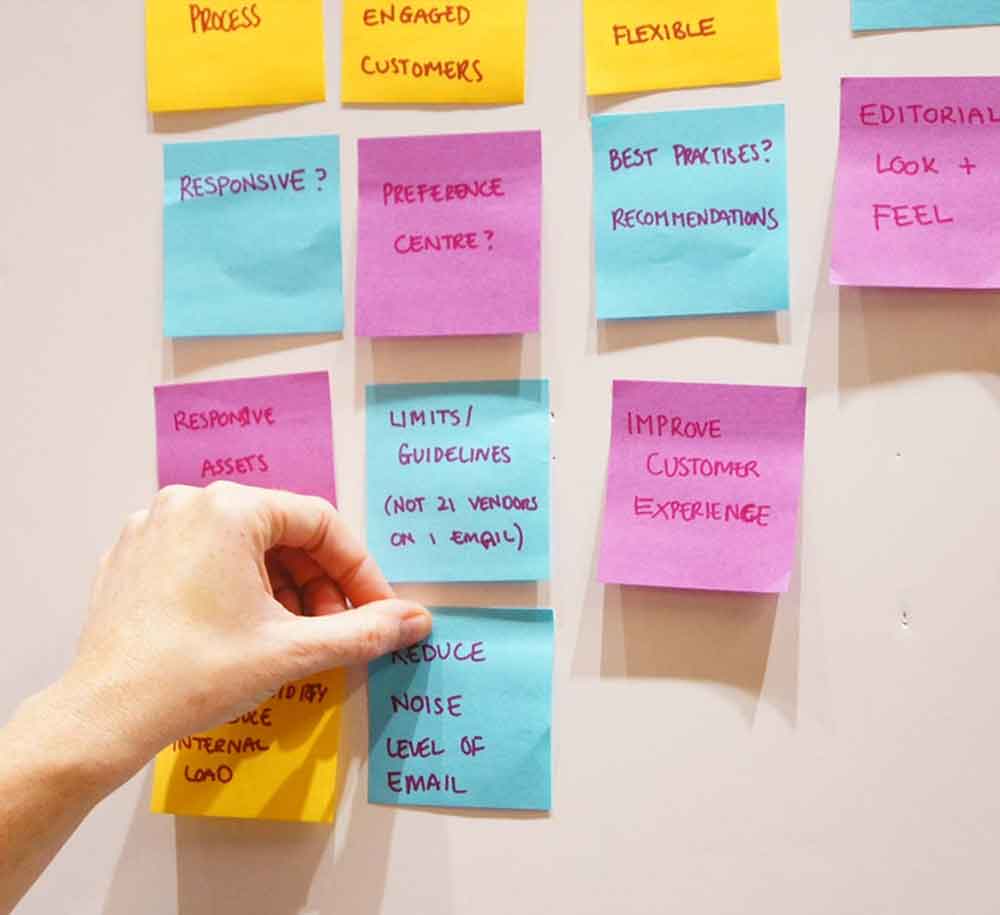 PROCESS
ENGAGED
CUSTOMERS
FLEXIBLE
RESPONSIVE?
PREFERENCE
CENTRE?
BEST PRACTISES?
RECOMMENDATIONS
EDITORIAL
LOOK +
FEEL
RESPONSIVE
ASSETS
LIMITS/
GUIDELINES
(NOT 21 VENDORS
ON 1 EMAIL)
IMPROVE
CUSTOMER
EXPERIENCE
INTERNAL
LOAD
REDUCE
NOISE
LEVEL OF
EMAIL